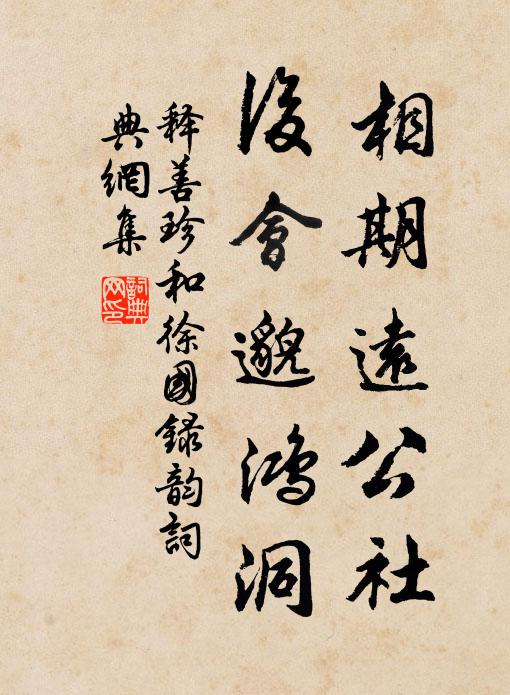 相期遠公社
後會邈鴻洞
释善珍和徐國録韵詞
典網集
詞典
网印